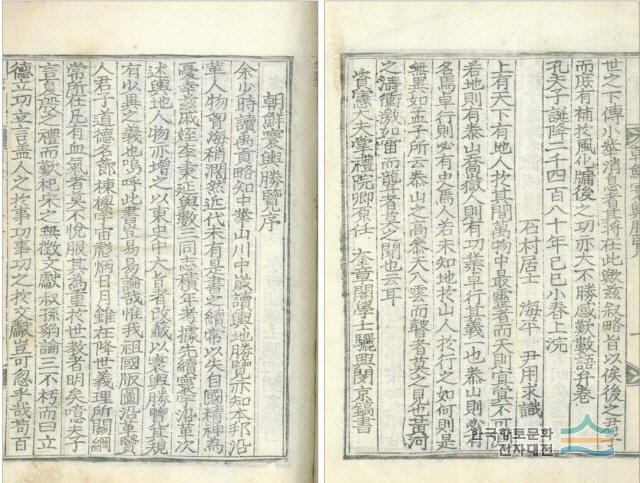 世之下傳小柴消息者其將在此歟玆叙略旨以俟後之君子
而庶有補於風化牖後之功亦大不勝感歎數語弁卷
孔夫子誕降二千四百八十年己巳小春上浣
石村居士 海平 尹用求識
上有天下有地人於其間萬物中最靈者而天則冥冥不可
若地則有泰山喬嶽人則有功業卓行其義一也泰山則必有
名焉卓行則必有史焉人若未知地於山人於行之如何則是
無異如孟子所云泰山之高參天入雲而聾者莫之見也黃河
之濤衝激如雷而聾者莫之聞也云耳
資憲大夫掌禮院卿原任 奎章閣學士驪興閔京鎬書
朝鮮寰輿勝覽序
余少時讀禹貢略知中華山川中歲讀輿地勝覽亦知本邦沿
革人物習海稍濶然近代未有是書之續常以失自國精神為
憂幸玆戚姪李秉延與數三同志積年考據先續寰宇沿革次
述輿地人物亦增之以東史中大旨者改籤以寰輿勝覽其規
有以異之義也嗚呼此書豈易易論哉惟我祖國版圖沿革賢
人君子道德名節棟樑宇宙彪炳日月雖在降世義理所關綱
常所在凡有血氣者莫不悅服其為重於世教者明矣噫夫子
言夏殷之禮而歎杞宋之無徵文獻叔孫豹論三不朽而曰立
德立功立言益人之於事功事功之於文獻豈可忽乎哉苟百
한국향토문화
전자대전